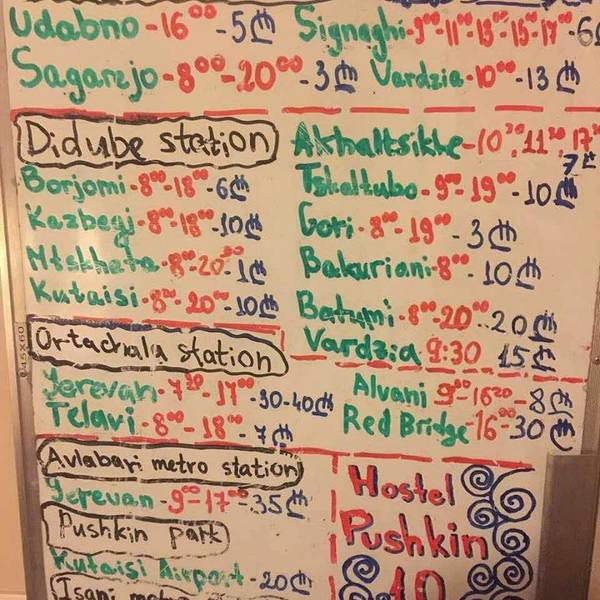 Udabno-16⁰⁰-5₾
Signaghi-9⁰⁰-11⁰⁰-13⁰⁰-15⁰⁰-17⁰⁰-6
Sagarejo-8⁰⁰-20⁰⁰-3₾
Vardzia-10⁰⁰-13₾
Didube station
Borjomi-8⁰⁰-18⁰⁰-6₾
Kazbegi-8⁰⁰-18⁰⁰-10₾
Mtskheta-8⁰⁰-20³⁰-1₾
Kutaisi-8⁰⁰-20⁰⁰-10₾
Akhaltsikhe-10²⁰,11²⁰,17
7₾
Tskaltubo-9⁰⁰-19⁰⁰-10₾
Gori-8⁰⁰-19⁰⁰-3₾
Bakuriani-8⁰⁰-10₾
Batumi-8⁰⁰-20⁰⁰-20₾
Vardzia 9:30 15₾
Ortachala station
Yerevan-7²⁰-17⁰⁰-30-40₾
Telavi-8⁰⁰-18⁰⁰-7₾
Alvani 9⁰⁰-16²⁰-8₾
Red Bridge-16⁰⁰-30₾
Avlabari metro station
Yerevan-9⁰⁰-17⁰⁰-35₾
Pushkin park
Kutaisi Airport-20₾
Isani metro
Hostel
Pushkin
10